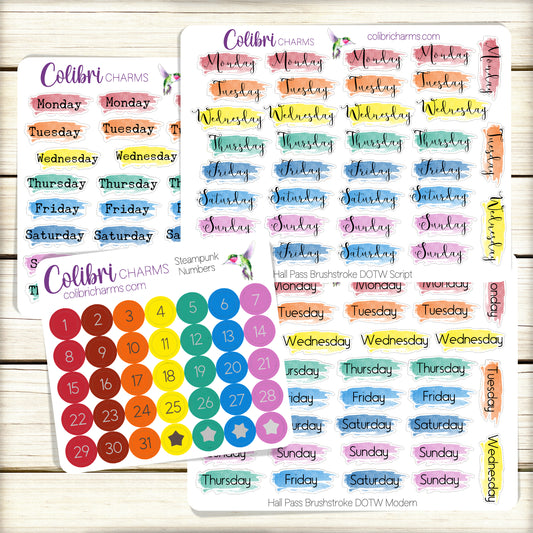 Colibri CHARMS
Monday Monday
Tuesday Tuesday
Wednesday Wednesday
Thursday Thursday
Friday Friday
Saturday Saturday
Colibri CHARMS
colibricharms.com
Monday Monday Monday Monday Monday
Tuesday Tuesday Tuesday Tuesday
Wednesday Wednesday Wednesday Wednesday
Thursday Thursday Thursday Thursday Tuesday
Friday Friday Friday Friday
Saturday Saturday Saturday Saturday Wednesday
Sunday Sunday Sunday Sunday
Hall Pass Brushstroke DOTW Script
Colibri CHARMS
colibricharms.com
Steampunk
Numbers
1 2 3 4 5 6 7
8 9 10 11 12 13 14
15 16 17 18 19 20 21
22 23 24 25 26 27 28
29 30 31
Monday Monday Monday
Tuesday Tuesday
Wednesday Wednesday Wednesday
Thursday Thursday Thursday Tuesday
Friday Friday Friday
Saturday Saturday Saturday Wednesday
Sunday Sunday Sunday
Thursday Friday Saturday Sunday
Hall Pass Brushstroke DOTW Modern